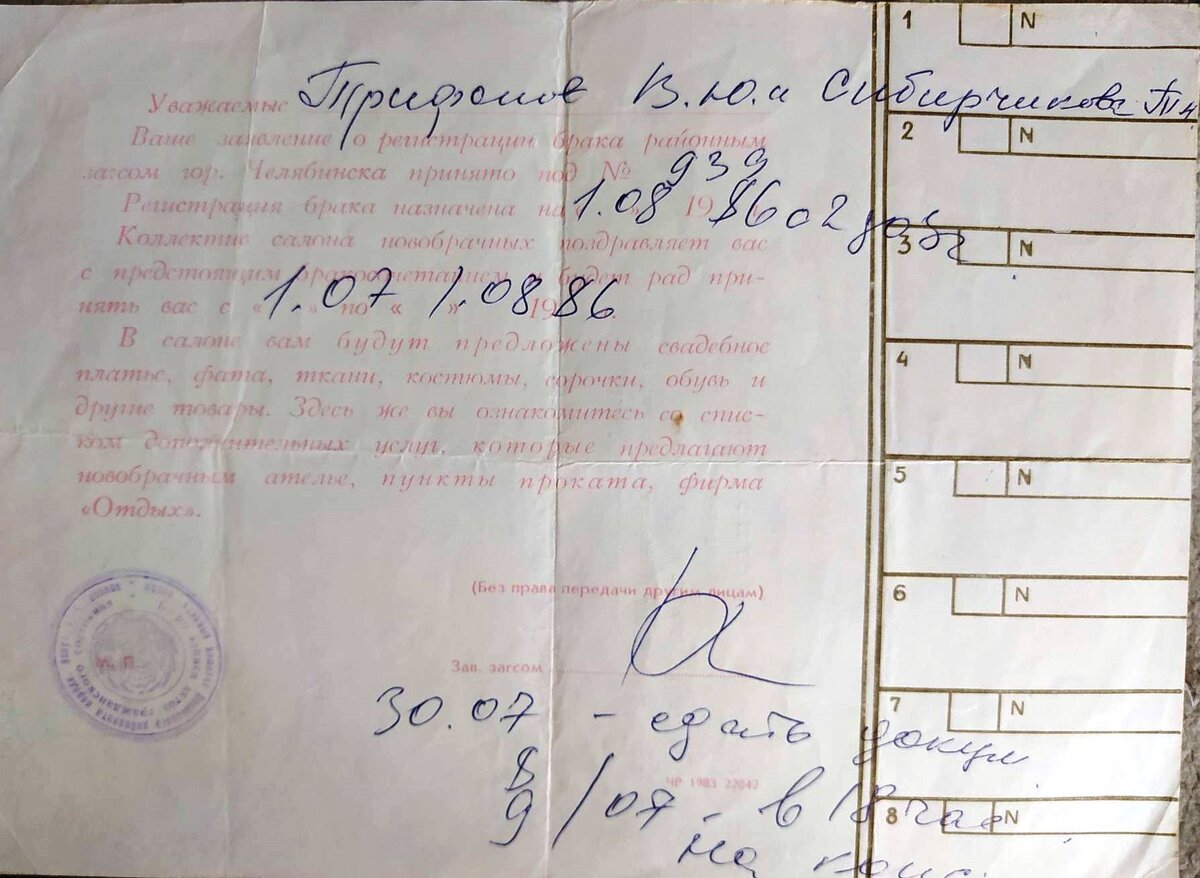 Уважаемые Трифонов В.Ю. и Сибирчикова Т.Н.
Ваше заявление о регистрации брака районным
загсом гор. Челябинска принято под № 939
Регистрация брака назначена на « 1.08 » 1986 с 2 до 3ч
Коллектив салона новобрачных поздравляет вас
с предстоящим бракосочетанием и будет рад при-
нять вас с « 1.07 » по « 1.08 » 1986.
В салоне вам будут предложены свадебное
платье, фата, ткани, костюмы, сорочки, обувь и
другие товары. Здесь же вы ознакомитесь со спис-
ком дополнительных услуг, которые предлагают
новобрачным ателье, пункты проката, фирма
«Отдых».
(Без права передачи другим лицам)
М. П.
Зав. загсом
30.07 - сдать докум
ЧР 1983 22842
8
9/07 - в 18 час
на
1 N
2 N
3 N
4 N
5 N
6 N
7 N
8 N